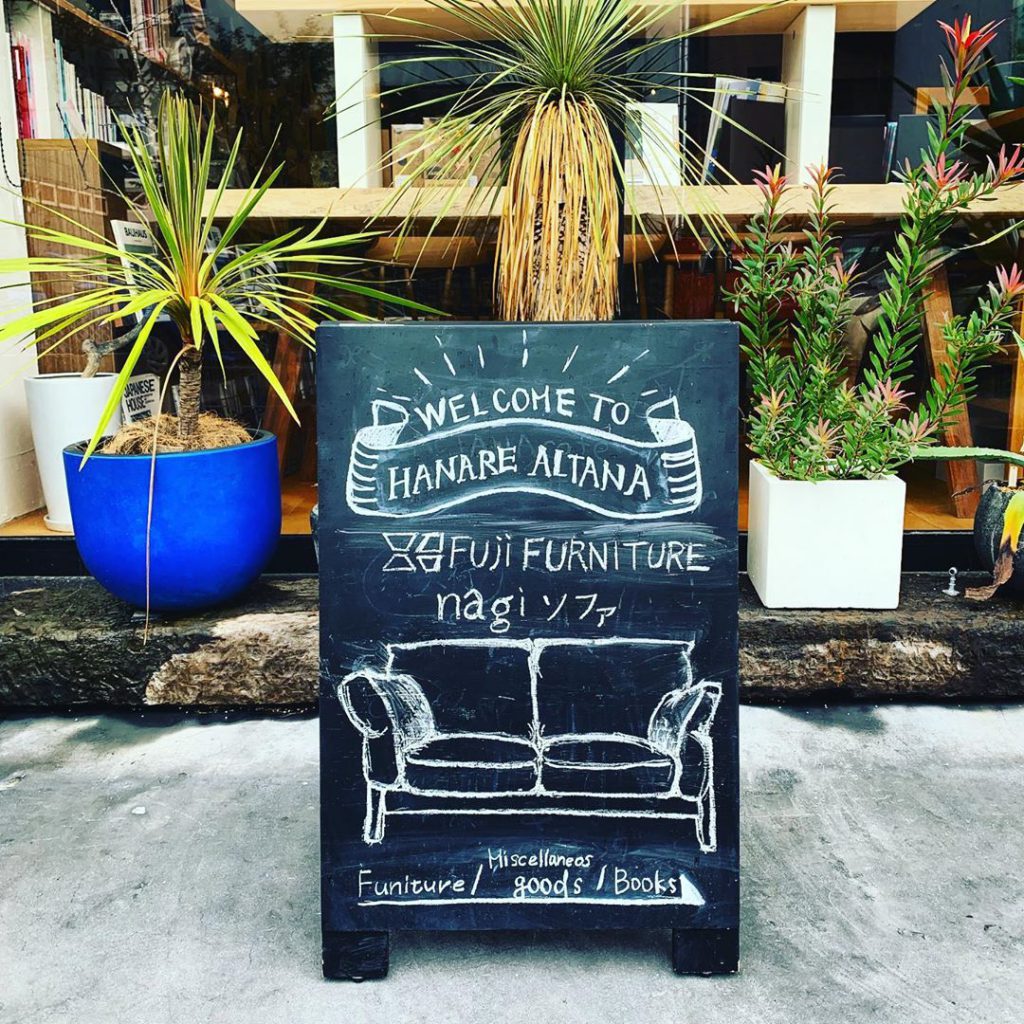 BAUHAUS
JAPANESE
HOUSE
WELCOME TO
HANARE ALTANA
FUJI FURNITURE
nagi ソファ
Miscellaneas
Funiture / goods / Books